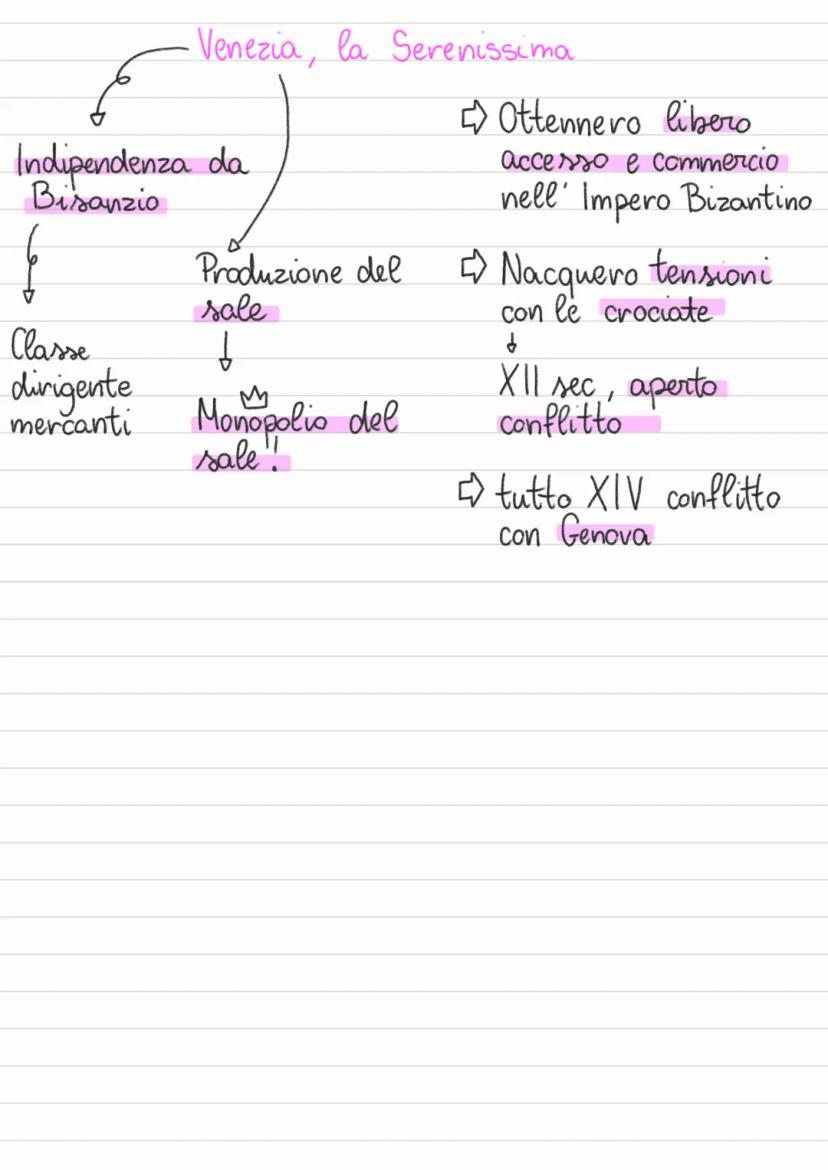 Venezia, la Serenissima
Indipendenza da
Bisanzio
Classe
dirigente
mercanti
Produzione del
sale
Monopolio del
sale!!
Ottennero libero
accesso e commercio
nell' Impero Bizantino
Nacquero tensioni
con le crociate
XII sec, aperto
conflitto
tutto XIV conflitto
con Genova